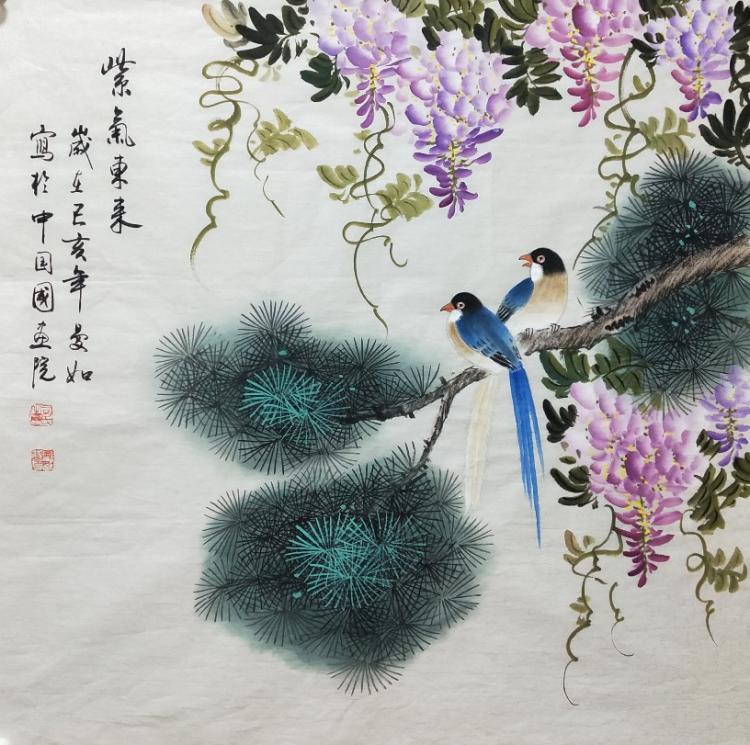 紫氣東來
歲在己亥年曼如
寫於中国國画院